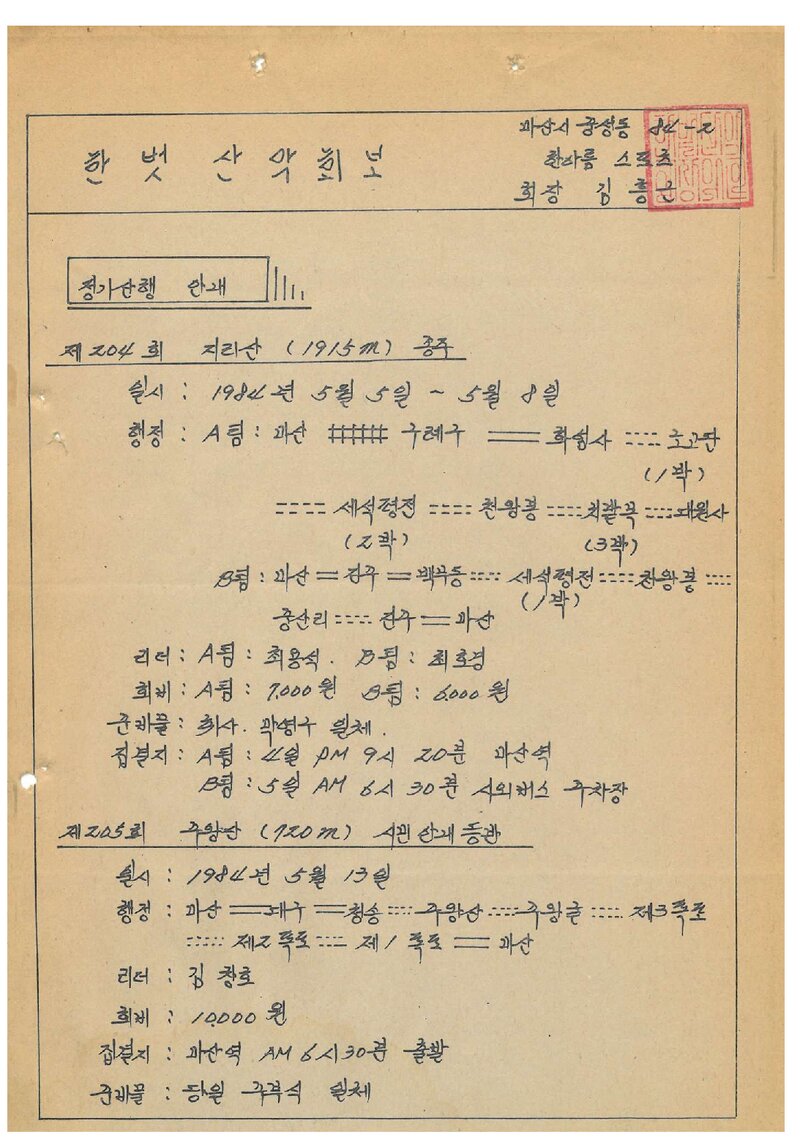 한벗 산악회보
마산시 중성동 84-2
한아름 스포츠
회장 김홍근
정기산행 안내
제204회 지리산 (1915m) 종주
일시 : 1984년 5월 5일 ~ 5월 8일
행정 : A팀 : 마산 ##### 구례구 === 화엄사 ==== 노고단
(1박)
==== 세석평전 ==== 천왕봉 ==== 치밭목 ==== 대원사
(2박) (3박)
B팀 : 마산 = 진주 = 백무동 ==== 세석평전 ==== 천왕봉 ====
(1박)
중산리 ==== 진주 == 마산
리더 : A팀 : 최용석. B팀 : 최호경
회비 : A팀 : 7,000원 B팀 : 6,000원
준비물 : 취사. 막영구 일체.
집결지 : A팀 : 4일 PM 9시 20분 마산역
B팀 : 5일 AM 6시 30분 시외버스 주차장
제205회 주왕산 (720m) 시민안내등반
일시 : 1984년 5월 13일
행정 : 마산 === 대구 == 청송 ==== 주왕산 ==== 주왕굴 ==== 제3폭포
==== 제2폭포 ==== 제1폭포 == 마산
리더 : 김창호
회비 : 10,000원
집결지 : 마산역 AM 6시 30분 출발
준비물 : 당일 주부식 일체